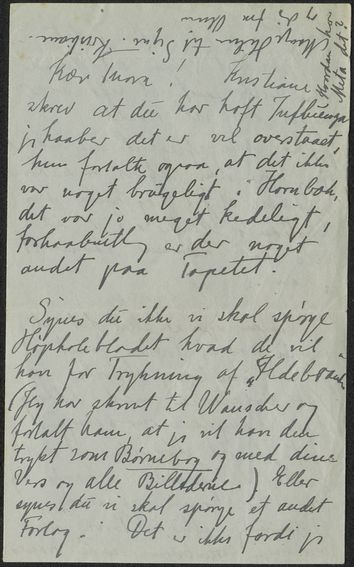 Kær Mor! Kristiane
skrev at du har haft Influenza
jeg haaber det er vel overstaaet,
hun fortalte ogsaa, at det ikke
var noget brugeligt i Hornbæk,
det var jo meget kedeligt,
forhaabentlig er der noget
andet paa Tapetet.
Synes du ikke vi skal spørge
Højskolebladet hvad de vil
have for Trykning af
(Jeg har skrevet til Wanscher og
fortalt ham, at jeg vil have den
trykt som Børnebog og med dine
Vers og alle Billederne) Eller
synes du vi skal spørge et andet
Forlag. Det er ikke fordi jeg
Hvordan har
Meta det?